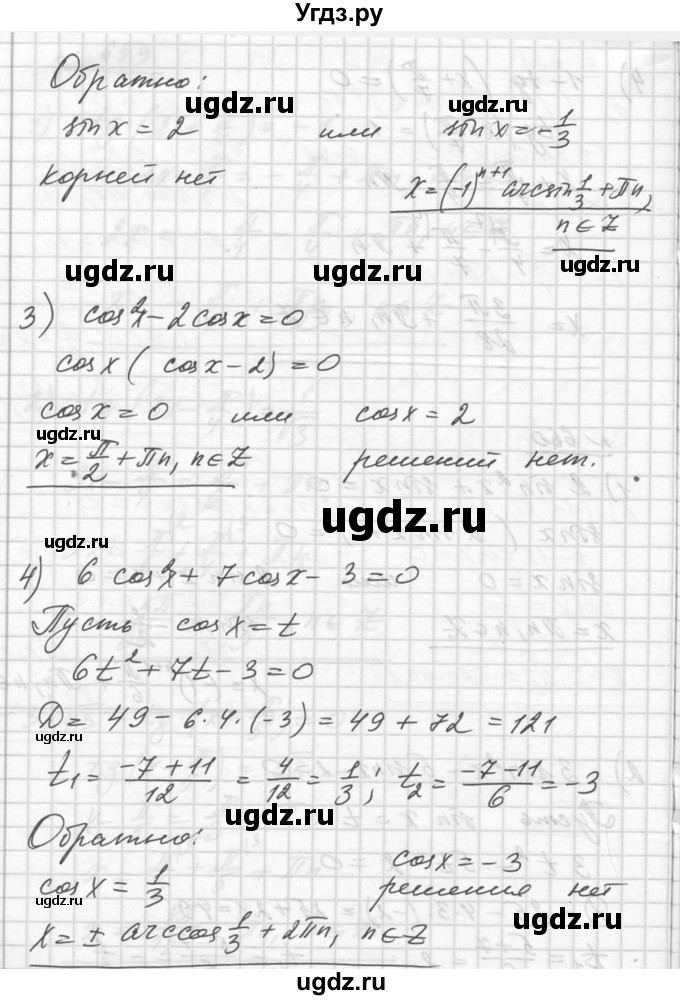 Угдз.ру
Обратно:
ugdz.ru ugdz.ru
sin x = 2 или sin x = -1/3
корней нет x = (-1)^(n+1) arcsin 1/3 + πn,
n ∈ Z
ugdz.ru ugdz.ru
3) cos²x - 2cosx = 0
cosx ( cosx - 2) = 0
cosx = 0 или cosx = 2
x = π/2 + πn, n ∈ Z решений нет.
ugdz.ru
ugdz.ru
4) 6 cos²x + 7cosx - 3 = 0
Пусть cosx = t
6t² + 7t - 3 = 0
D = 49 - 6·4·(-3) = 49 + 72 = 121
ugdz.ru
t₁ = (-7+11)/12 = 4/12 = 1/3; t₂ = (-7-11)/6 = -3
ugdz.ru ugdz.ru
Обратно:
cosx = -3
cosx = 1/3 решения нет
ugdz.ru
x = ± arccos 1/3 + 2πn, n ∈ Z
ugdz.ru